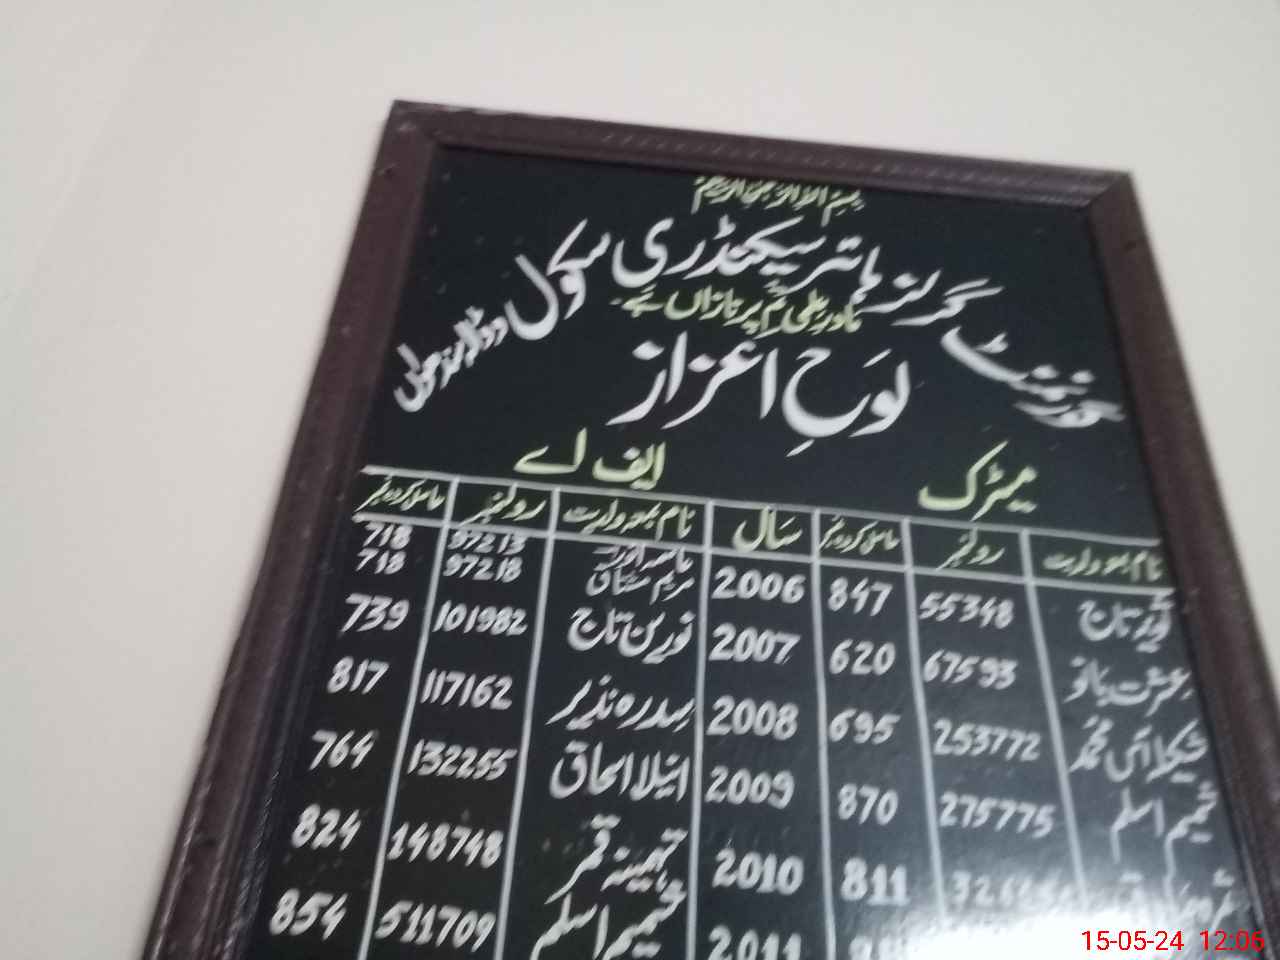 بسم اللہ الرحمن الرحیم
گورنمنٹ گرلز ہائر سیکنڈری سکول
مادرِ علمی تم پر نازاں ہے
لوحِ اعزاز
میٹرک ایف اے
نام بمعہ ولدیت رولنمبر حاصل کردہ نمبر سَال نام بمعہ ولدیت رولنمبر حاصل کردہ نمبر
97213 718
تاج 55348 847 2006 مریم مشتاق 97218 718
عشرت بانو 67593 620 2007 نورین تاج 101982 739
253772 695 2008 سدرہ نذیر 117162 817
شمیم اسلم 275775 870 2009 انیلا اسحاق 132255 764
811 2010 تہمینہ قمر 148748 824
2011 شمیم اسلم 511709 854
15-05-24 12:06